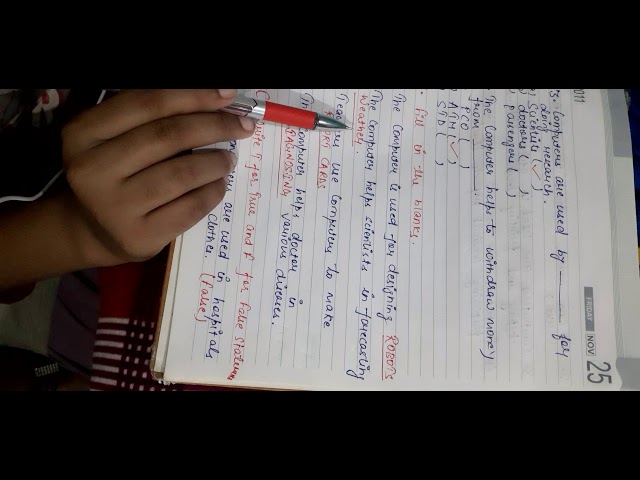 2011
FRIDAY NOV 25
3. Computers are used by ____ for
doing research.
Scientist (✓)
doctors ( )
passengers ( )
The Computer helps to withdraw money
from ____.
PCO ( )
ATM (✓)
STD ( )
Fill in the blanks.
The Computer is used for designing ROBOTS
The Computer helps scientists in forecasting
Weather.
use Computers to make
CARDS
Computer helps doctor in
DIAGNOSING various diseases.
T for True and F for False statement
are used in hospitals
clothes. (False)